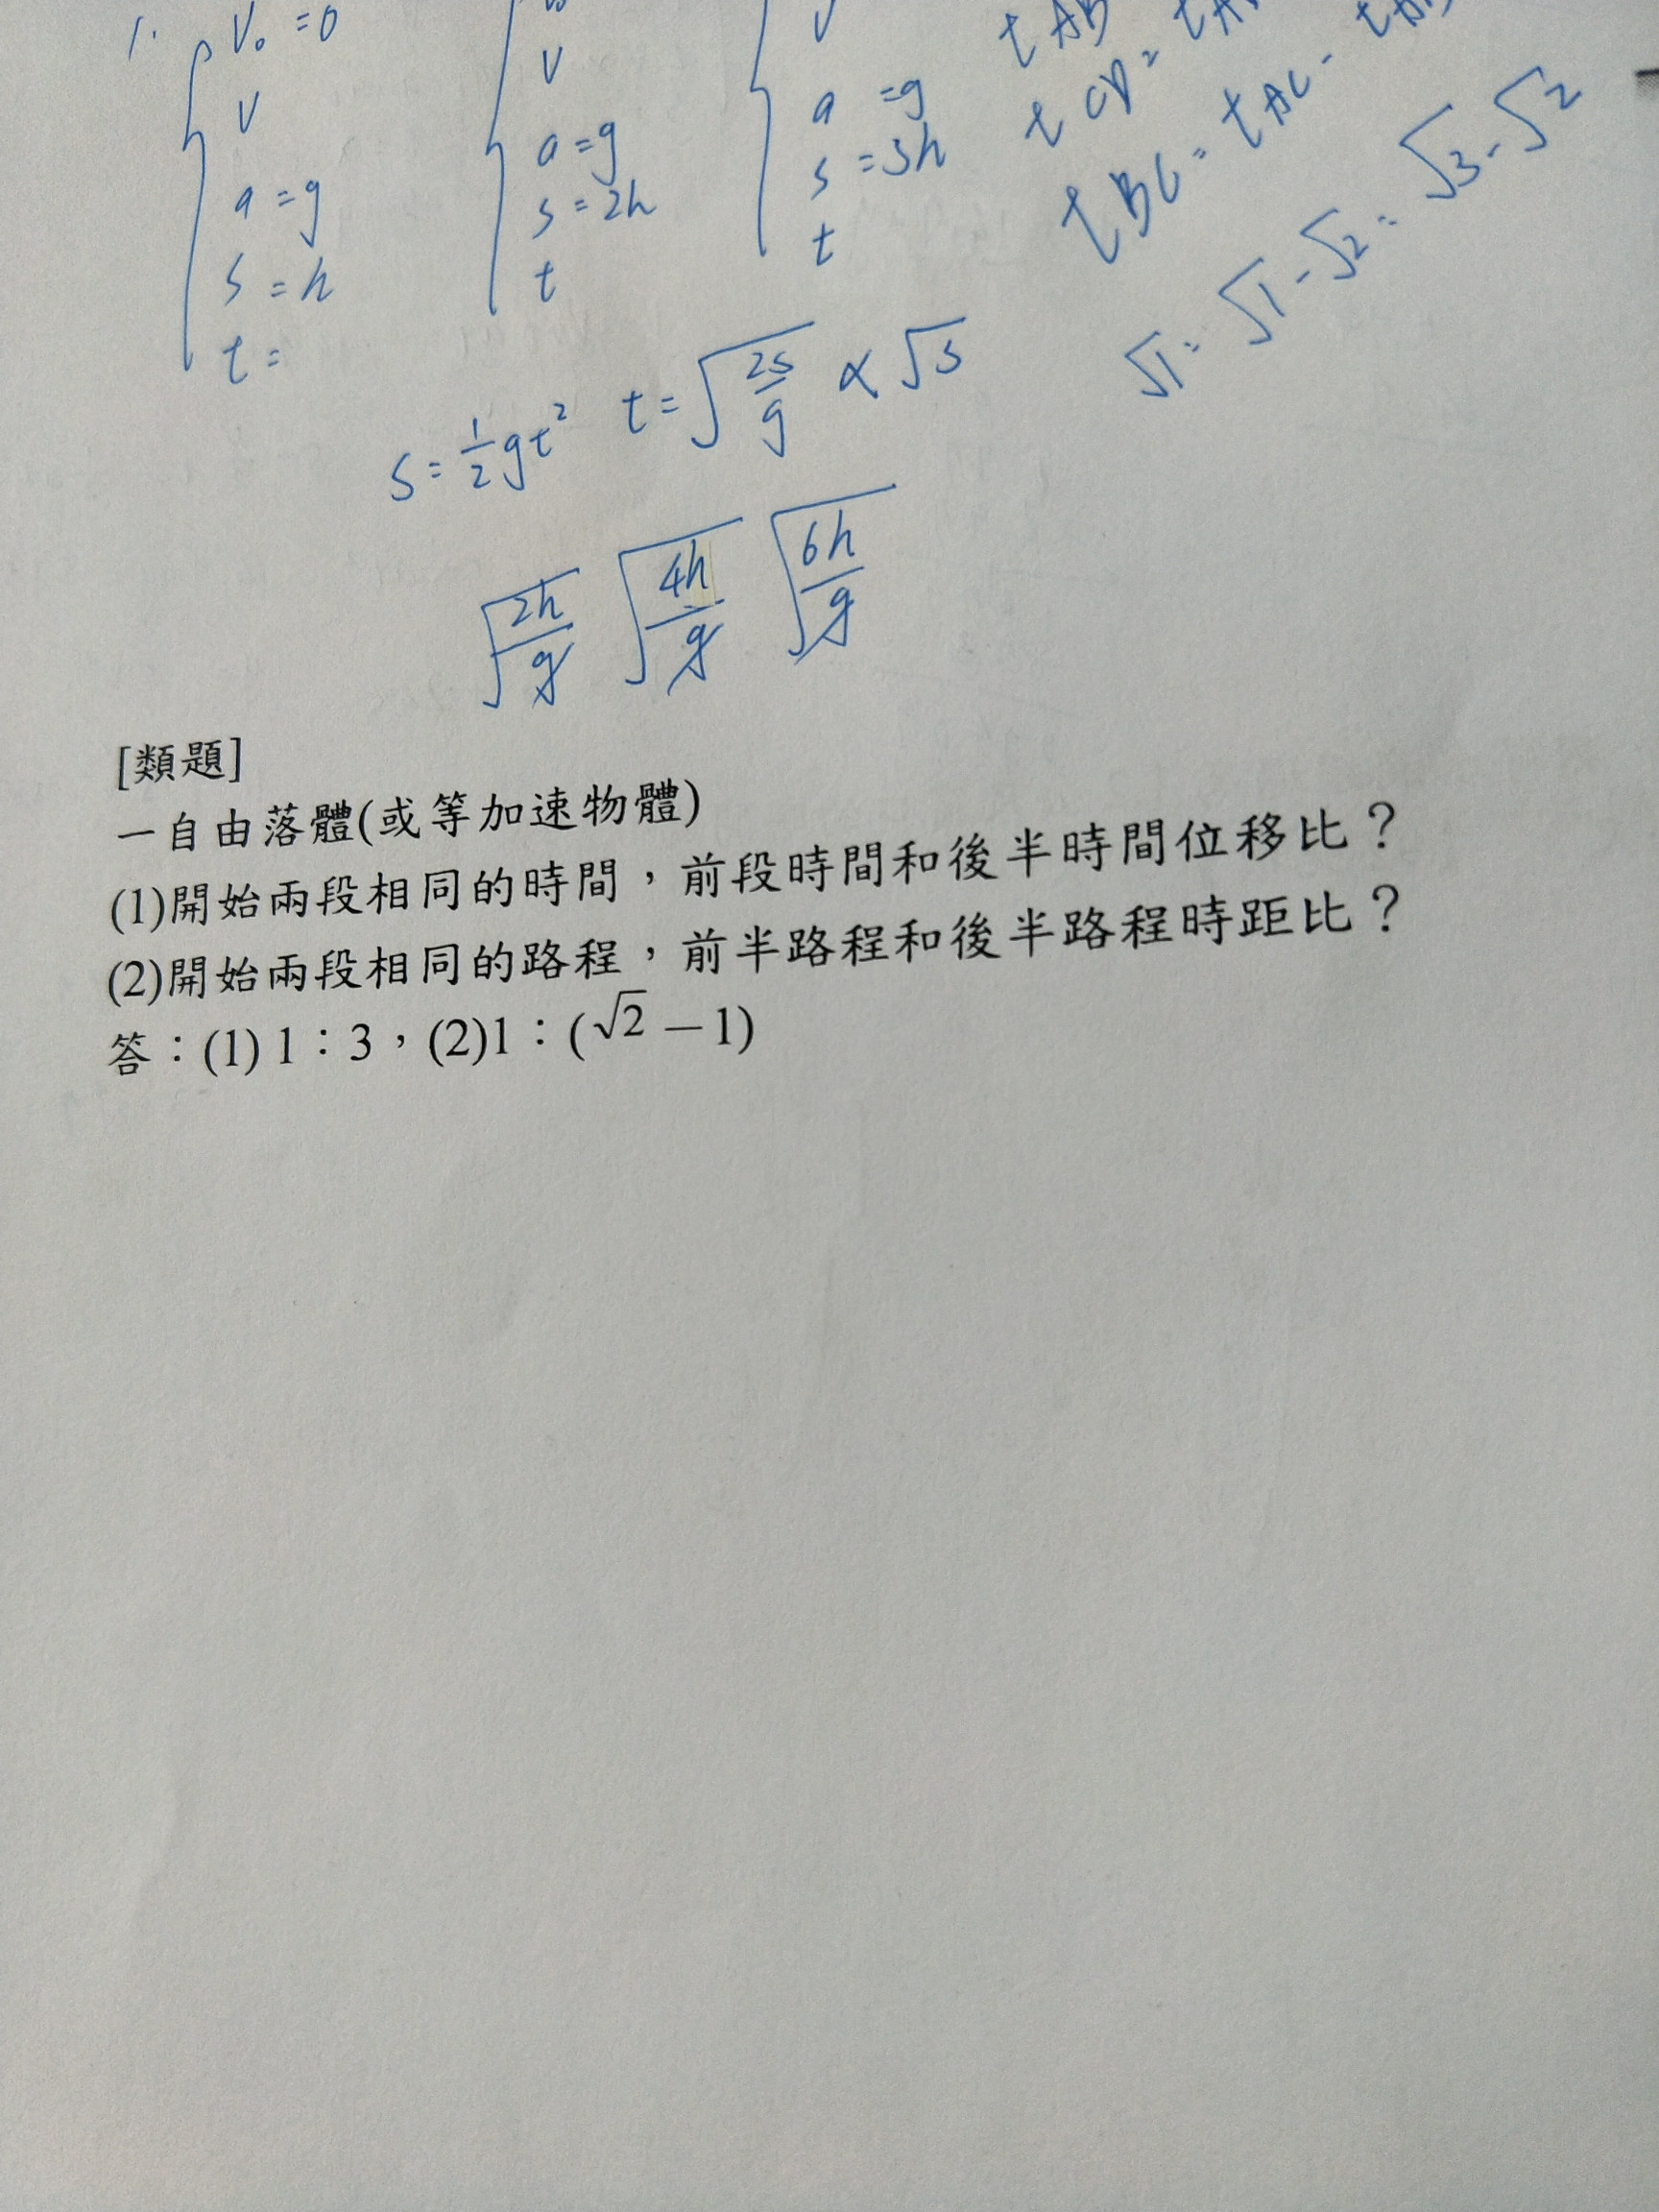 1.
V₀ = 0
V
a = g
s = h
t =
V
a = g
s = 2h
t
V
a = g
s = 3h
t
t AB
t CD =
t BC = t AC -
√1 : √1 - √2 : √3 - √2
s = 1/2 gt² t = √(2s/g) ∝ √s
√(2h/g) √(4h/g) √(6h/g)
[類題]
一自由落體(或等加速物體)
(1)開始兩段相同的時間，前段時間和後半時間位移比？
(2)開始兩段相同的路程，前半路程和後半路程時距比？
答：(1) 1：3，(2)1：(√2 －1)